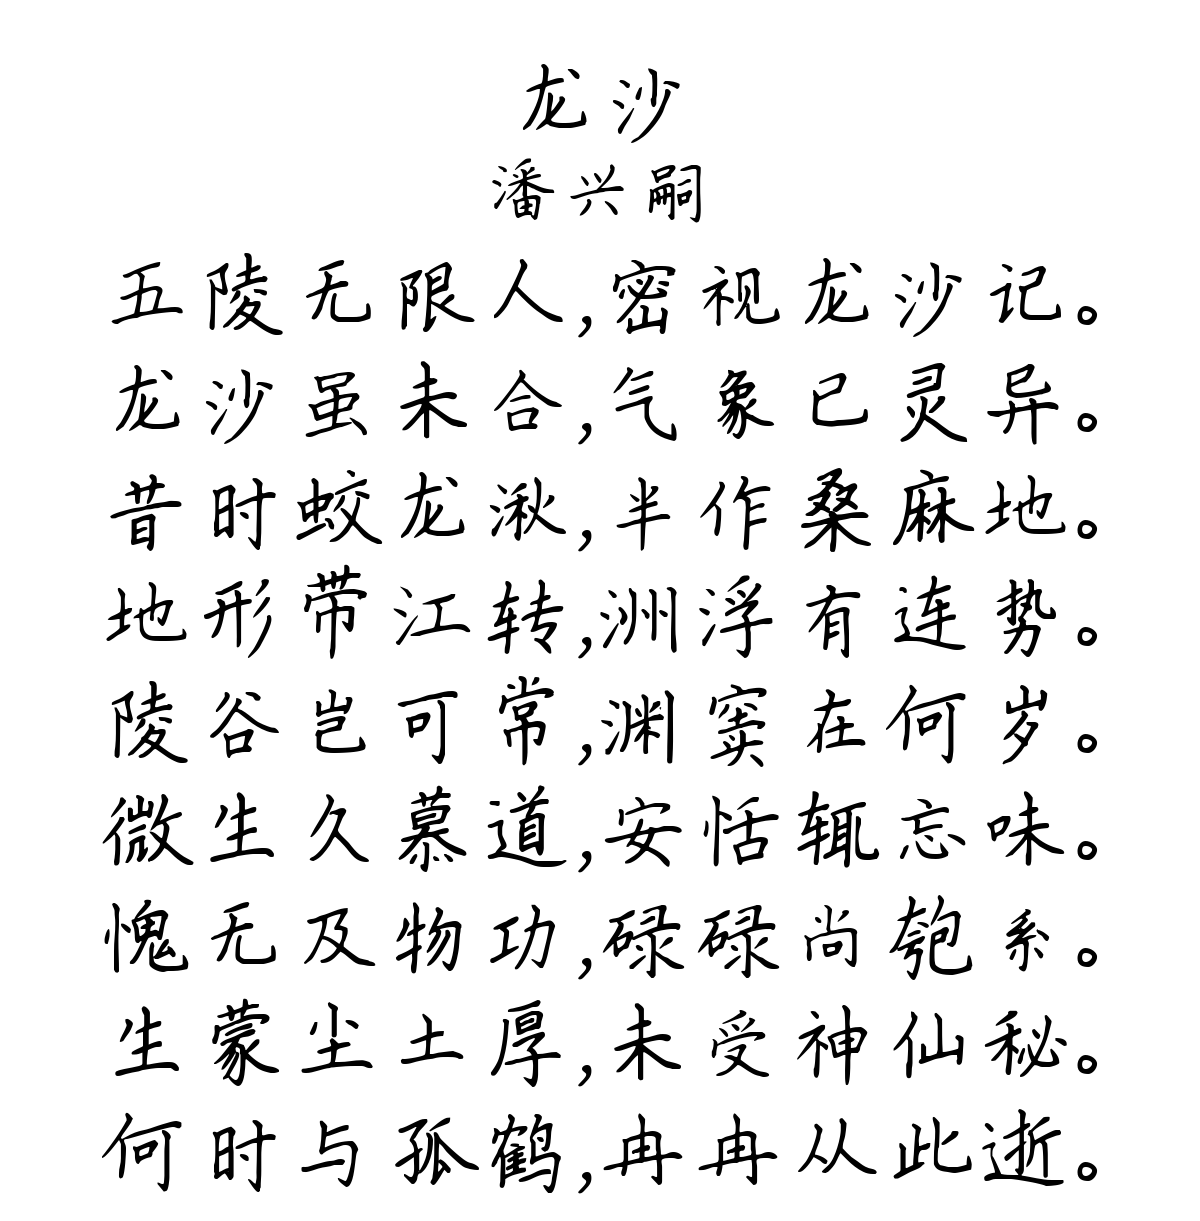 龙沙
潘兴嗣
五陵无限人,密视龙沙记。
龙沙虽未合,气象已灵异。
昔时蛟龙湫,半作桑麻地。
地形带江转,洲浮有连势。
陵谷岂可常,渊窦在何岁。
微生久慕道,安恬辄忘味。
愧无及物功,碌碌尚匏系。
生蒙尘土厚,未受神仙秘。
何时与孤鹤,冉冉从此逝。